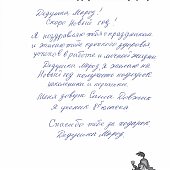 Дедушка Мороз!
Скоро Новый год!
Я поздравляю тебя с праздником
и желаю тебе крепкого здоровья
успехов в работе и личной жизни.
Дедушка Мороз я желаю на
Новый год получить подарок
машинки и
Меня зовут Саша
Я ученик
Спасибо тебе за подарок
Дедушка Мороз.